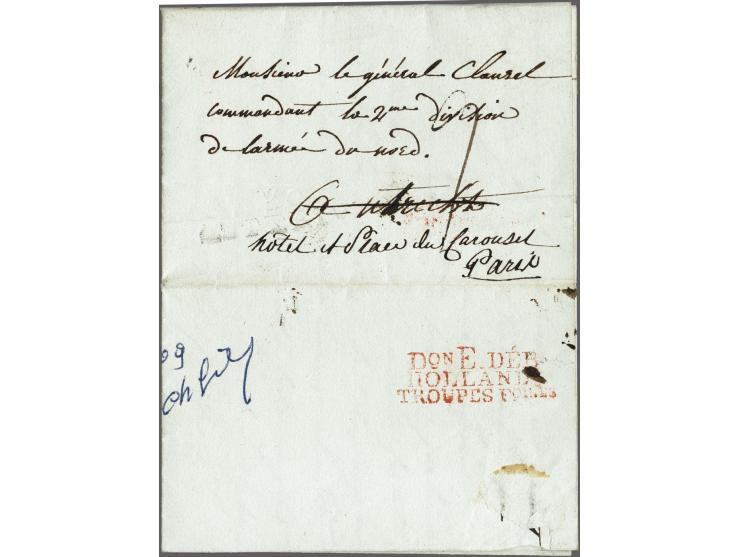 Monsieur le général Clauzel
commandant la 2me division
de larmée du nord.
a utrecht
hotel et Place du Carousel
Paris
09
DON E. DÉB
HOLLANDE
TROUPES